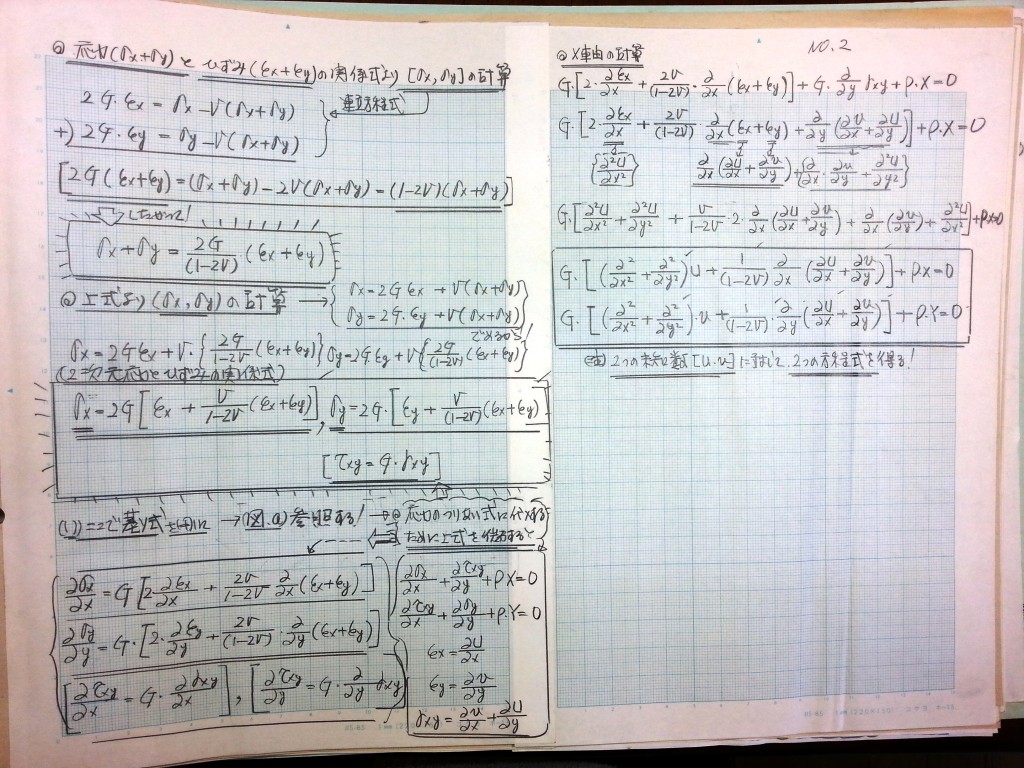 ◎ 応力(σx+σy)とひずみ(εx+εy)の関係式より[σx,σy]の計算
2G・εx=σx-ν(σx+σy)
連立方程式
+) 2G・εy=σy-ν(σx+σy)
[2G(εx+εy)=(σx+σy)-2ν(σx+σy)=(1-2ν)(σx+σy)]
したがって!
σx+σy=2G/(1-2ν)(εx+εy)
◎上式より(σx,σy)の計算→
σx=2Gεx+ν(σx+σy)
σy=2G・εy+ν(σx+σy)
であるから!
σx=2Gεx+ν・{2G/1-2ν(εx+εy)} σy=2Gεy+ν{2G/(1-2ν)(εx+εy)}
(2次元応力とひずみの関係式)
σx=2G[εx+ν/1-2ν(εx+εy)], σy=2G・[εy+ν/(1-2ν)(εx+εy)]
[τxy=G・γxy]
(1))ここで基式を →図.a)参照する!→◎応力のつりあい式に代入する
ために上式を
∂σx/∂x=G[2∂εx/∂x+2ν/1-2ν ∂/∂x(εx+εy)]
∂σy/∂y=G・[2・∂εy/∂y+2ν/(1-2ν)・∂/∂y(εx+εy)]
[∂τxy/∂x=G・∂γxy/∂x], [∂τxy/∂y=G・∂/∂y γxy]
∂σx/∂x+∂τxy/∂y+ρ.X=0
∂τxy/∂x+∂σy/∂y+ρ.Y=0
εx=∂u/∂x
εy=∂v/∂y
γxy=∂v/∂x+∂u/∂y
NO.2
◎X軸の計算
G.[2・∂εx/∂x+2ν/(1-2ν)・∂/∂x(εx+εy)]+G・∂/∂y γxy+ρ.X=0
G.[2・∂εx/∂x+2ν/(1-2ν)・∂/∂x(εx+εy)+∂/∂y(∂v/∂x+∂u/∂y)]+ρ.X=0
{∂²u/∂x²} ∂/∂x(∂u/∂x+∂v/∂y)+{∂/∂x・∂v/∂y+∂²u/∂y²}
G.[∂²u/∂x²+∂²u/∂y²+ν/1-2ν・2・∂/∂x(∂u/∂x+∂v/∂y)+∂/∂x(∂v/∂y)+∂²u/∂x²]+ρX=0
G.[(∂²/∂x²+∂²/∂y²)u+1/(1-2ν) ∂/∂x(∂u/∂x+∂v/∂y)]+ρX=0
G.[(∂²/∂x²+∂²/∂y²)・v+1/(1-2ν)・∂/∂y(∂u/∂x+∂v/∂y)]+ρ.Y=0
2つの未知数[u.v]に対して、2つの方程式を得る!